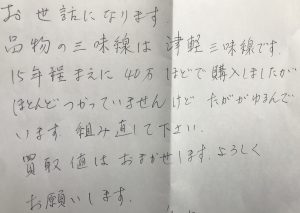 お世話になります.
品物の三味線は 津軽三味線です.
15年程まえに 40万ほどで購入しましたが
ほとんどつかっていませんけど たががゆるんで
います. 組み直して下さい.
買取値はおまかせします. よろしく
お願いします.